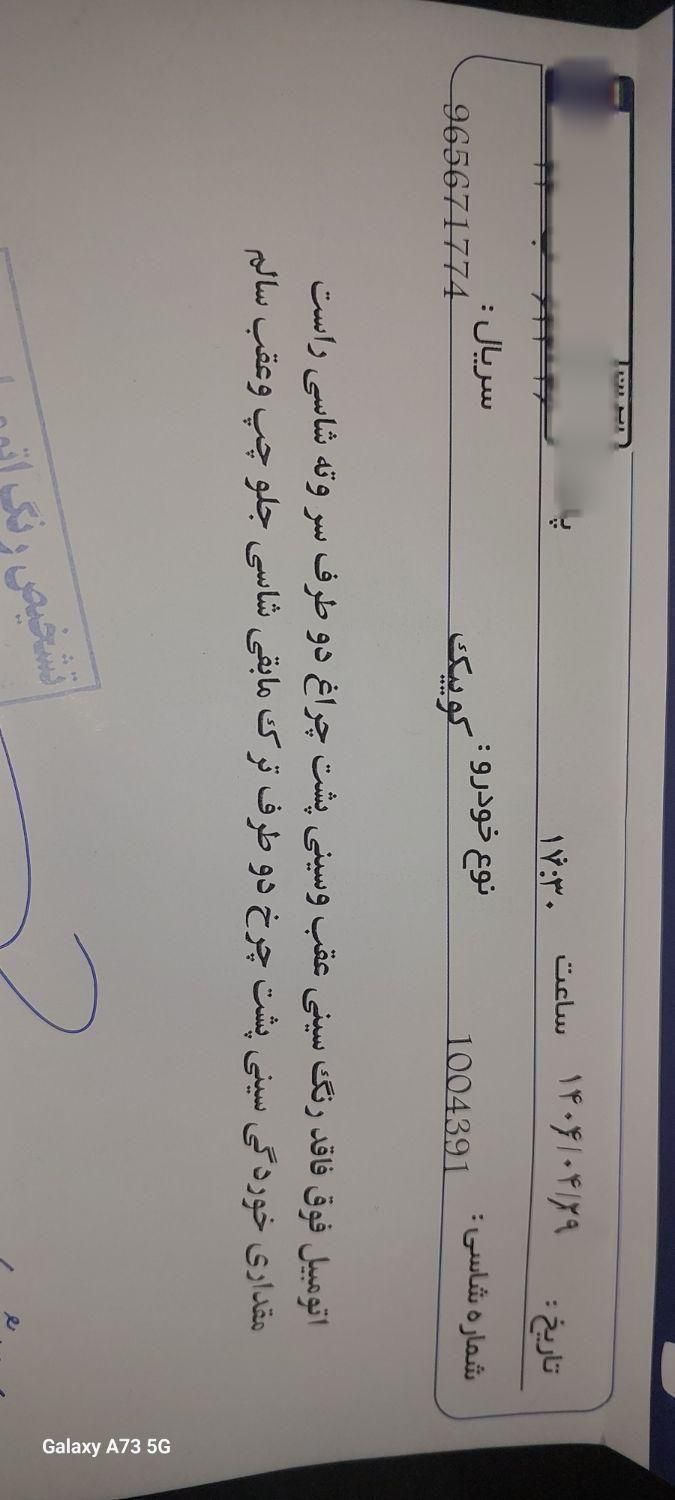 تاریخ : ۱۴۰۴/۰۴/۲۹ ساعت ۱۷:۳۰
شماره شاسی : 1004391 نوع خودرو : کوییک سریال : 965671774
اتومبیل فوق فاقد رنگ سینی عقب وسینی پشت چراغ دو طرف سر وته شاسی راست
مقداری خوردگی سینی پشت چرخ دو طرف ترک مابقی شاسی جلو چپ وعقب سالم
تشخیص رنگ
Galaxy A73 5G